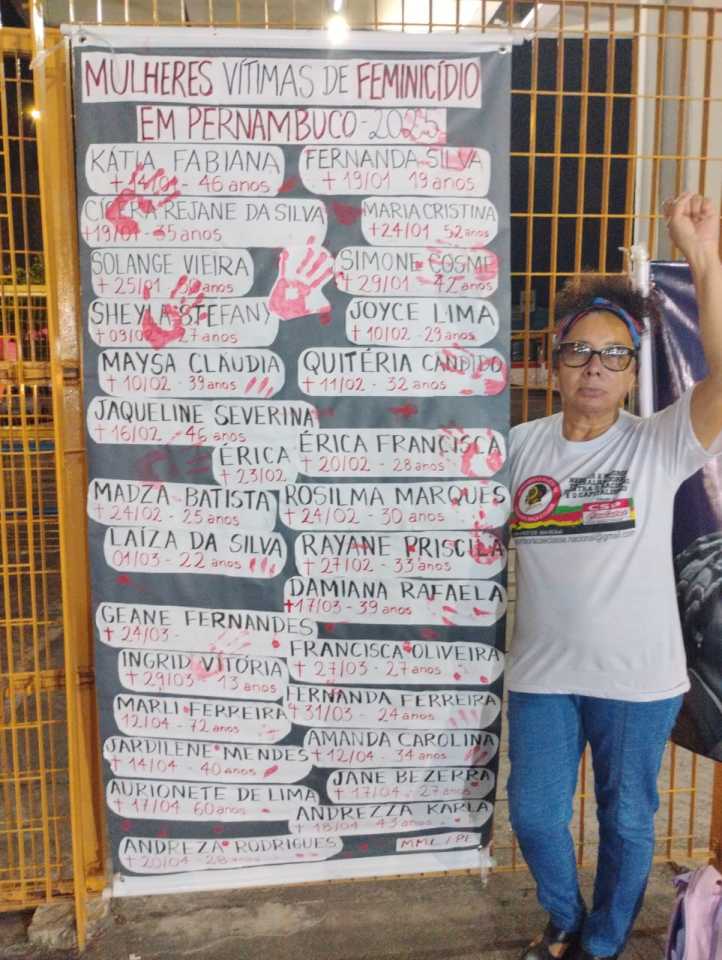 MULHERES VÍTIMAS DE FEMINICÍDIO
EM PERNAMBUCO - 2025
KÁTIA FABIANA
46 anos
FERNANDA SILVA
+ 19/01 19 anos
CÍCERA REJANE DA SILVA
+19/01 - 35 anos
MARIA CRISTINA
+24/01 52 anos
SOLANGE VIEIRA
+ 25/01 anos
SIMONE COSME
+29/01 42 anos
SHEYLA STEFANY
+ 09/02 27 anos
JOYCE LIMA
+ 10/02 - 29 anos
MAYSA CLÁUDIA
+ 10/02 - 39 anos
QUITÉRIA CANDIDO
+ 11/02 - 32 anos
JAQUELINE SEVERINA
+ 16/02 - 46 anos
ÉRICA
+ 23/02
ÉRICA FRANCISCA
+ 20/02 - 28 anos
MADZA BATISTA
+ 24/02 - 25 anos
ROSILMA MARQUES
+ 24/02 - 30 anos
LAÍZA DA SILVA
01/03 - 22 anos
RAYANE PRISCILA
+ 27/02 - 33 anos
DAMIANA RAFAELA
+17/03 - 39 anos
GEANE FERNANDES
+ 24/03 -
FRANCISCA OLIVEIRA
+ 27/03 - 27 anos
INGRID VITÓRIA
+ 29/03 - 13 anos
FERNANDA FERREIRA
+ 31/03 - 24 anos
MARLI FERREIRA
12/04 - 72 anos
AMANDA CAROLINA
+ 12/04 - 34 anos
JARDILENE MENDES
+ 14/04 - 40 anos
JANE BEZERRA
+ 17/04 - 27 anos
AURIONETE DE LIMA
+ 17/04 60 anos
ANDREZZA KARLA
+ 18/04 - 43 anos
ANDREZA RODRIGUES
+ 20/04 - 28 anos
MML / PE
E O CAPITALISMO
CSP